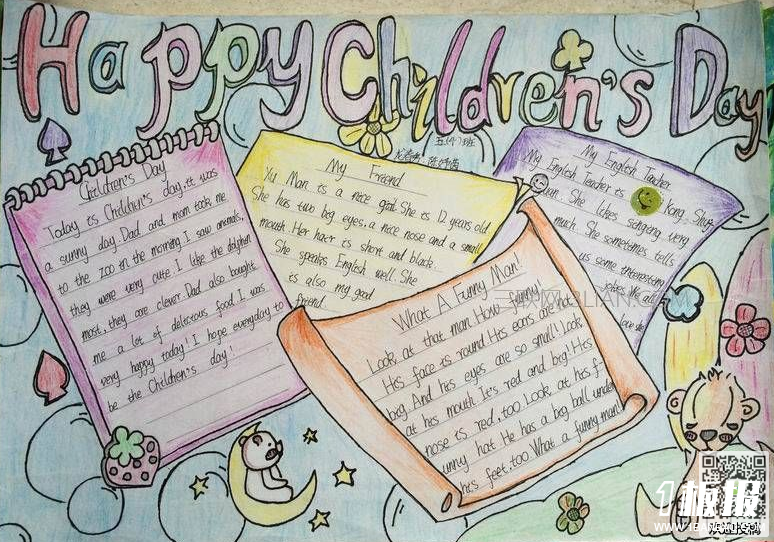 Happy Children's Day
Children's Day
Today is Children's day, it was
a sunny day. Dad and mom took me
to the zoo in the morning I saw animals,
they were very cute. I like the dolphin
most, they are clever. Dad also bought
me a lot of delicious food. I was
very happy today! I hope everyday to
be the Children's day!
My Friend
Yu Man is a nice girl. She is 12 years old.
She has two big eyes, a nice nose and a small
mouth. Her hair is short and black.
She speaks English well. She
is also my good
friend.
My English Teacher
My English Teacher is Kong Shu
uan. She likes singing very
much. She sometimes tells
us some interesting
jokes. We all
love she
What A Funny Man!
Look at that man. How funny!
His face is round. His ears are not
big. And his eyes are so small! Look
at his mouth. It's red and big! His
nose is red, too. Look at his f-
unny hat. He has a big ball under
his feet, too. What a funny man!
1板报
WWW.1BANBAO.COM
欢迎投稿